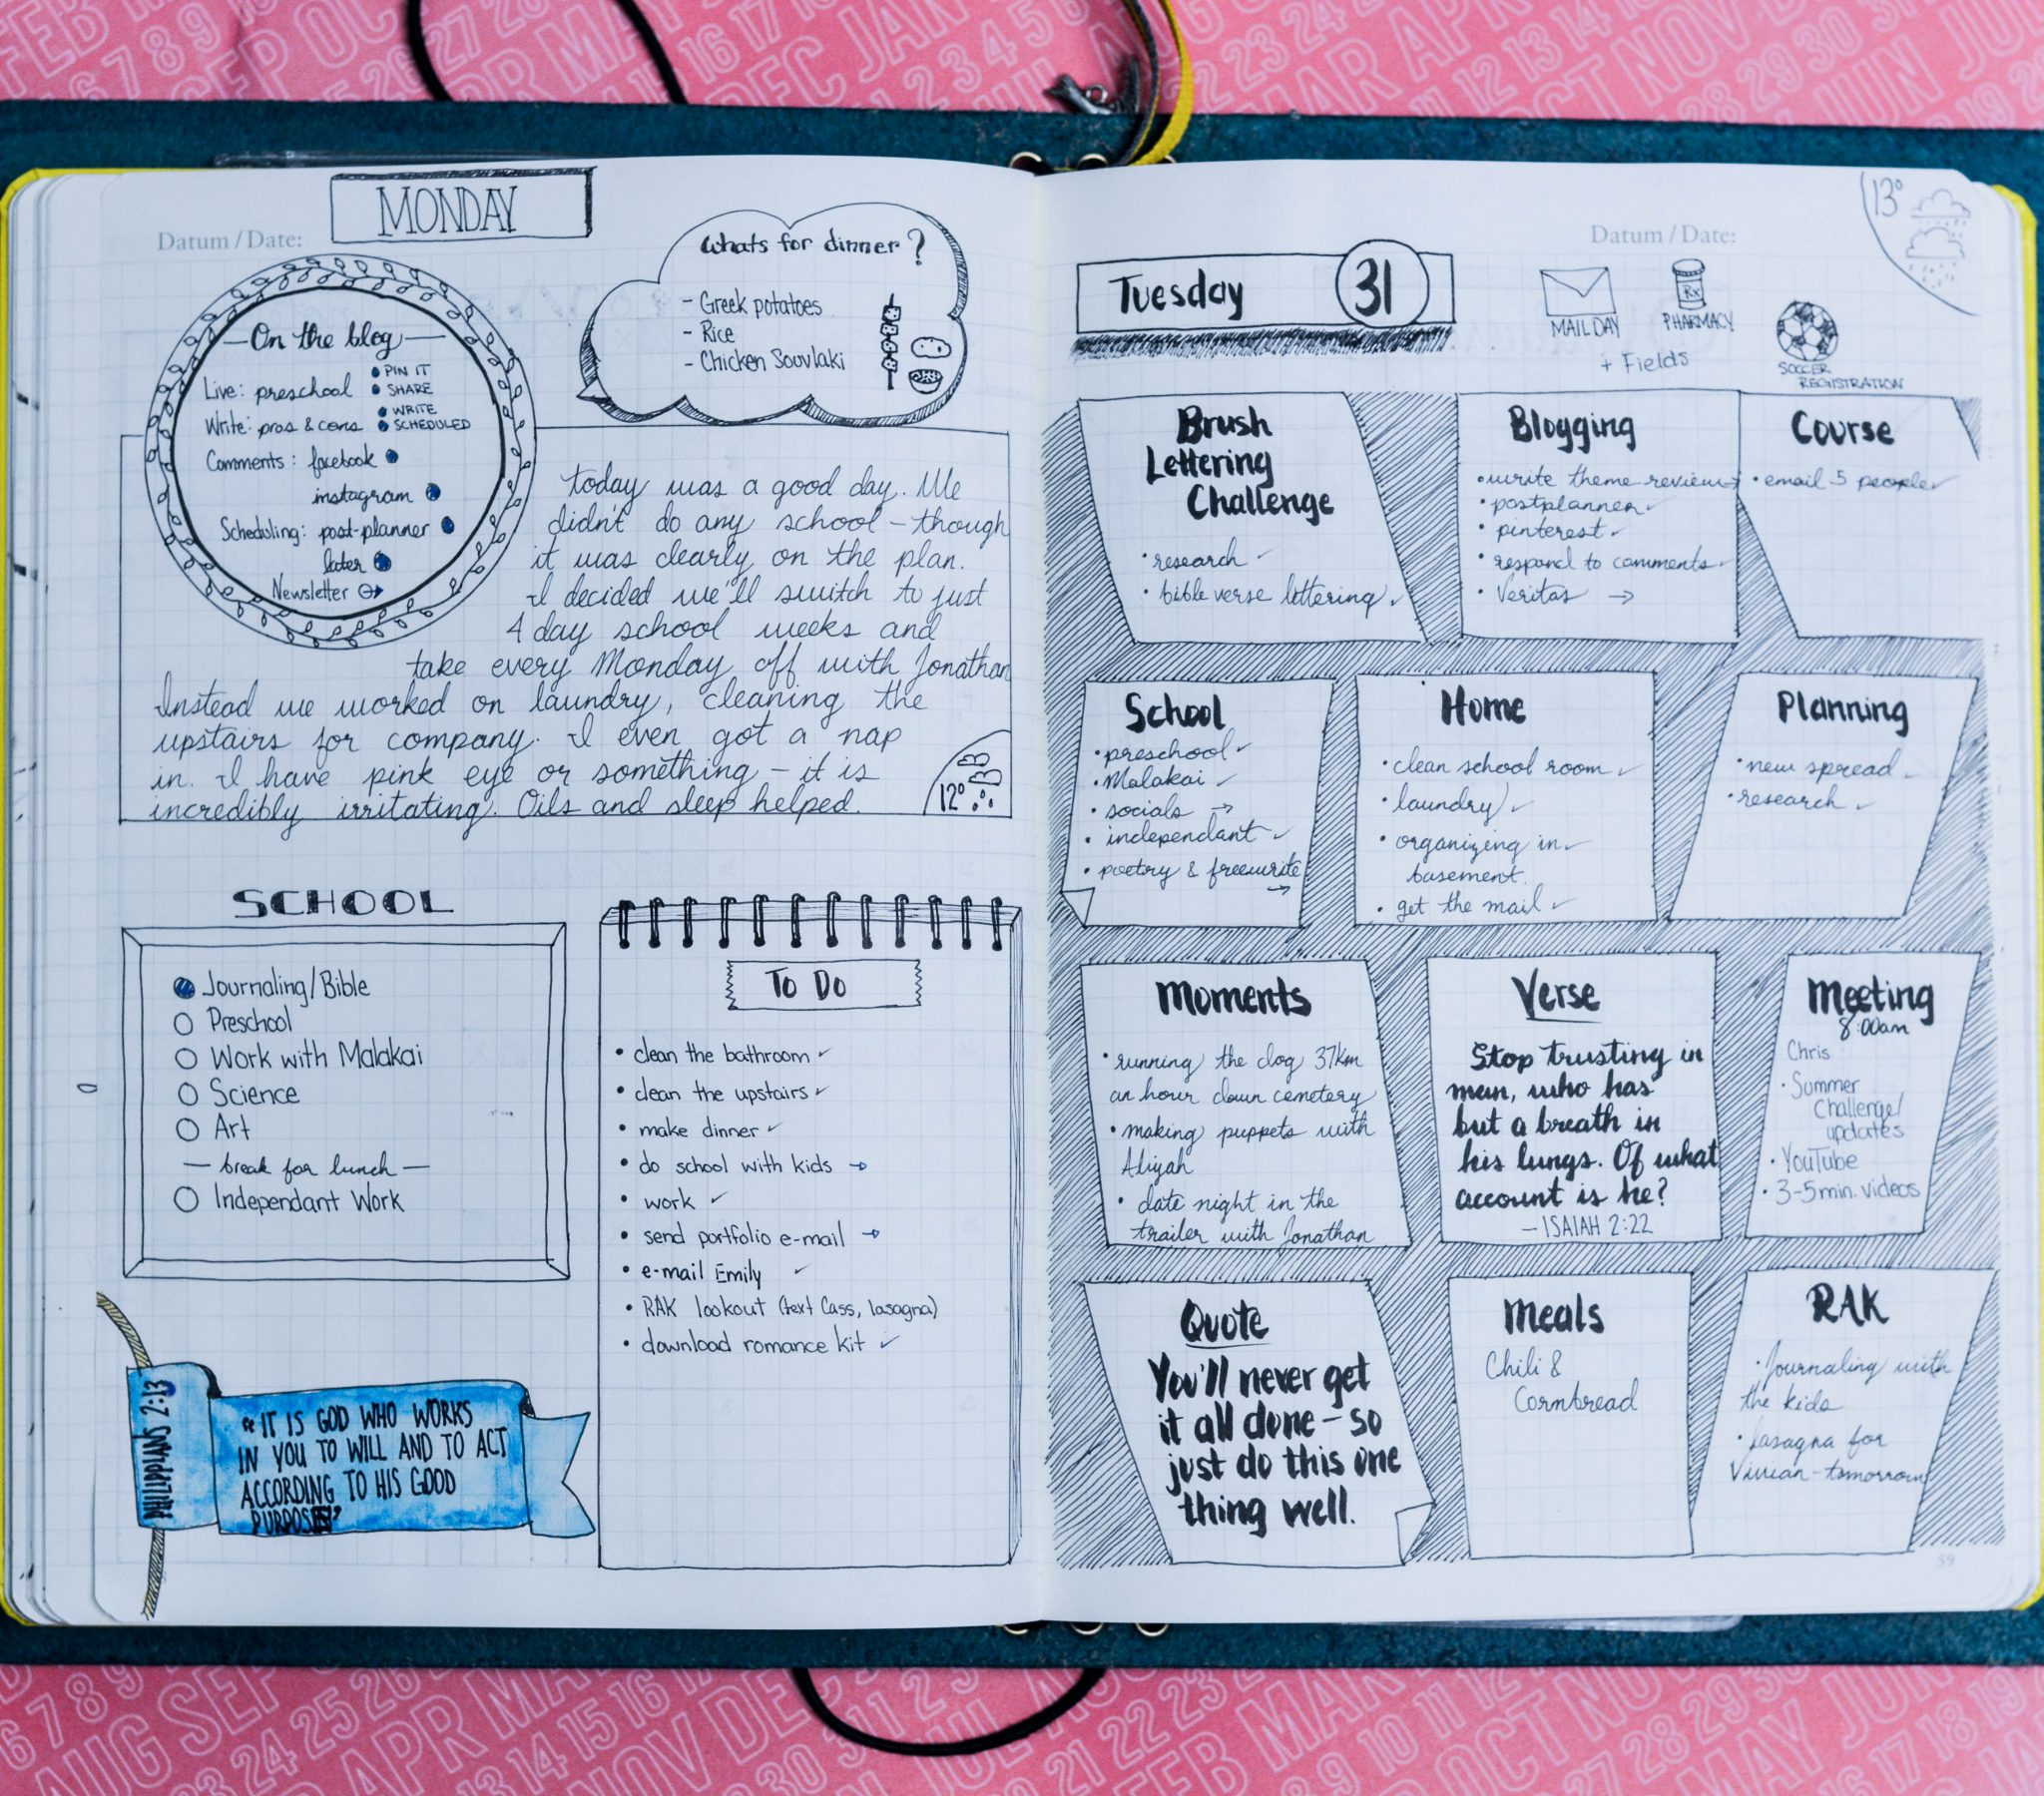 Datum / Date:
MONDAY
On the blog
Live: preschool
• PIN IT
• SHARE
Write: pros & cons
• WRITE
• SCHEDULED
Comments: facebook
instagram
Scheduling: post-planner
later
Newsletter
Whats for dinner?
- Greek potatoes
- Rice
- Chicken Souvlaki
today was a good day. We
didn't do any school - though
it was clearly on the plan.
I decided we'll switch to just
4 day school weeks and
take every Monday off with Jonathan
Instead we worked on laundry, cleaning the
upstairs for company. I even got a nap
in. I have pink eye or something - it is
incredibly irritating. Oils and sleep helped.
12°
SCHOOL
Journaling/Bible
Preschool
Work with Malakai
Science
Art
— break for lunch —
Independant Work
PHILIPPIANS 2:13
"IT IS GOD WHO WORKS
IN YOU TO WILL AND TO ACT
ACCORDING TO HIS GOOD
To Do
• clean the bathroom ✓
• clean the upstairs ✓
• make dinner ✓
• do school with kids →
• work ✓
• send portfolio e-mail →
• e-mail Emily ✓
• RAK lookout (text Cass, lasagna)
• download romance kit ✓
Datum / Date:
13°
Tuesday 31
MAIL DAY
Rx
PHARMACY
+ Fields
SOCCER
REGISTRATION
Brush
Lettering
Challenge
• research ✓
• bible verse lettering ✓
Blogging
• write theme review →
• postplanner ✓
• pinterest ✓
• respond to comments ✓
• Veritas →
Course
• email 5 people ✓
School
• preschool ✓
• Malakai ✓
• socials →
• independant ✓
• poetry & freewrite
→
Home
• clean school room ✓
• laundry ✓
• organizing in ✓
basement.
• get the mail ✓
Planning
• new spread ✓
• research ✓
Moments
• running the dog 37km
an hour down cemetery
• making puppets with
Aliyah
• date night in the
trailer with Jonathan
Verse
Stop trusting in
man, who has
but a breath in
his lungs. Of what
account is he?
— ISAIAH 2:22
Meeting
8:00am
Chris
• Summer
Challenge/
updates
• YouTube
• 3-5 min. videos
Quote
You'll never get
it all done - so
just do this one
thing well.
Meals
Chili &
Cornbread
RAK
• Journaling with
the kids
• lasagna for
Vivian - tomorrow
59